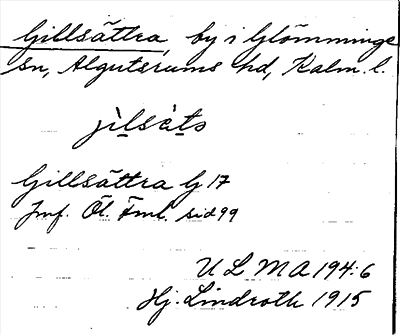 Gillsättra, by i Glömminge
sn, Algutsrums hd, Kalm. l.
jìlsàtɔ
Gillsättra G 17
Jmf. Öl. Fml. sid 99
U L M A 194:6
Hj. Lindroth 1915